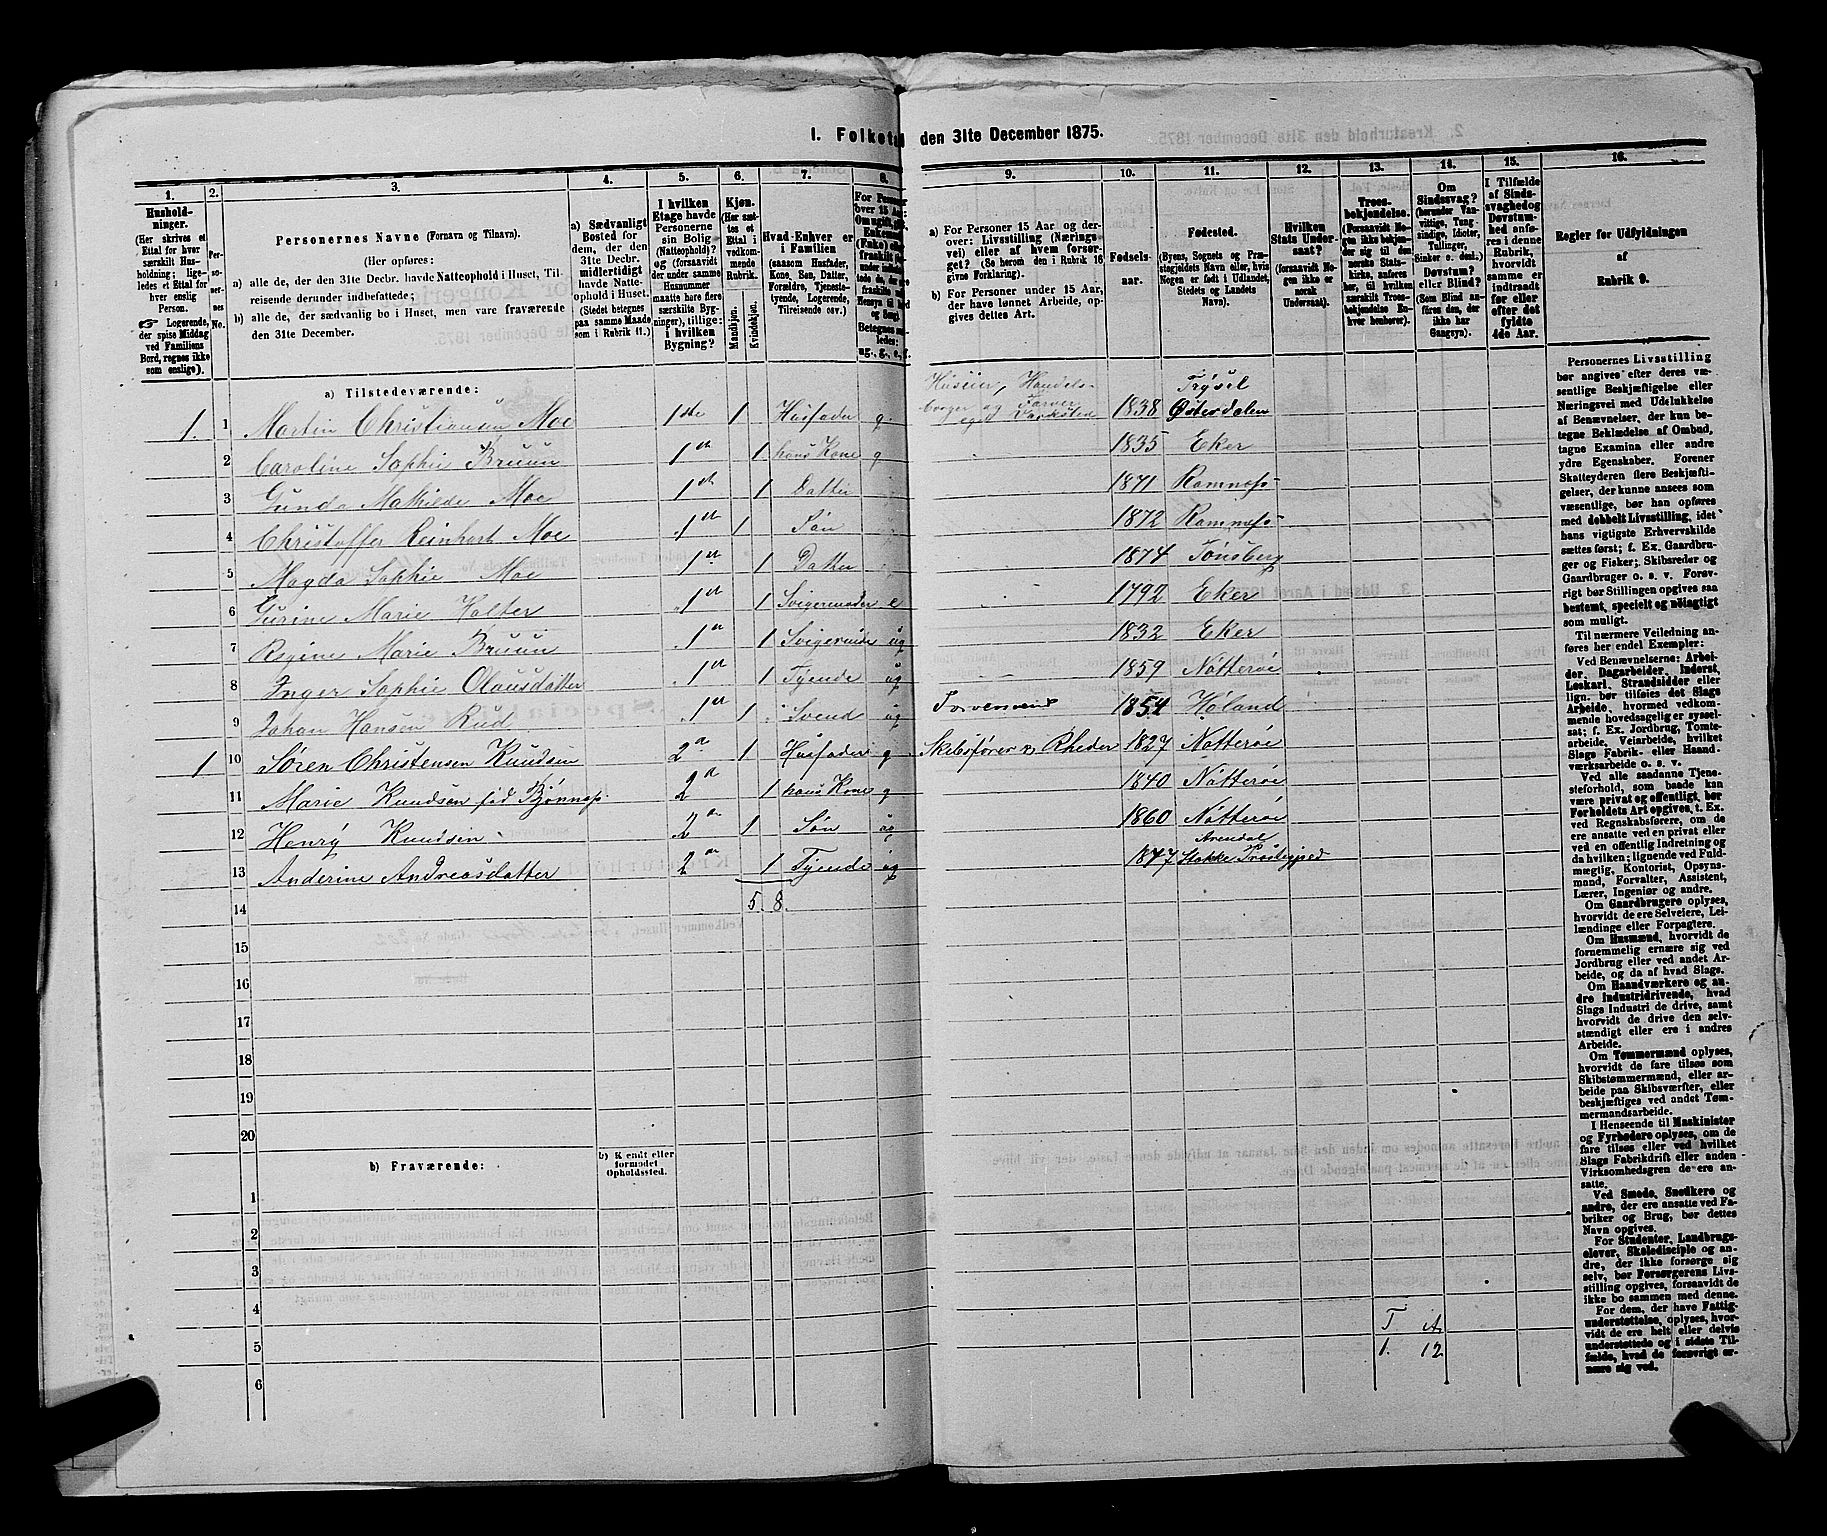 I. Folketal den 31te December 1875.
1. 2. 3. 4. 5. 6. 7. 8. 9. 10. 11. 12. 13. 14. 15. 16.
Husholdninger.
(Her skrives et Ettal for hver særskilt Husholdning; ligeledes et Ettal for hver enslig Person.
☞ Logerende, der spise Middag ved Familiens Bord, regnes ikke som enslige).
Personernes No.
Personernes Navne (Fornavn og Tilnavn).
(Her opføres:
a) alle de, der den 31te Decbr. havde Natteophold i Huset, Tilreisende derunder indbefattede;
b) alle de, der sædvanlig bo i Huset, men vare fraværende den 31te December.
a) Sædvanligt Bosted for dem, der den 31te Decbr. midlertidigt havde Natteophold i Huset. (Stedet betegnes paa samme Maade som i Rubrik 11.)
I hvilken Etage havde Personerne sin Bolig (Natteophold)? og (forsaavidt der under samme Husnummer maatte høre flere særskilte Bygninger), tillige: i hvilken Bygning?
Kjøn. (Her sættes et Ettal i vedkommende Rubrik.
Mandkjøn. Kvindekjøn.
Hvad Enhver er i Familien
(saasom Husfader, Kone, Søn, Datter, Forældre, Tjenestetyende, Logerende, Tilreisende osv.)
a) For Personer 15 Aar og derover: Livsstilling (Næringsvei) eller af hvem forsørget? (Se herom den i Rubrik 16 givne Forklaring).
b) For Personer under 15 Aar, der have lønnet Arbeide, opgives dettes Art.
Fødselsaar.
Fødested.
(Byens, Sognets og Præstegjeldets Navn eller, hvis Nogen er født i Udlandet, Stedets og Landets Navn).
Hvilken Stats Undersaat?
(forsaavidt Nogen ikke er norsk Undersaat).
Troesbekjendelse.
(Forsaavidt Nogen ikke bekjender sig til den norske Statskirke, anføres her, til hvilken særskilt Troesbekjendelse Enhver henhører).
Om Sindssvag? (herunder Vanvittige, Tungsindige, Idioter, Tullinger, Sinker o. desl.) Døvstum? eller Blind?
(Som Blind anføres den, der ikke har Gangsyn).
I Tilfælde af Sindssvaghed og Døvstumhed anføres i denne Rubrik, hvorvidt samme er indtraadt før eller efter det fyldte 4de Aar.
Regler for Udfyldningen
af
Rubrik 9.
a) Tilstedeværende:
1. 1 Martin Christianian Moe 1ste 1 Husfader g Huseier, Handelsborger og Farver 1838 Trysil Østerdalen
2 Caroline Sophie Bruun 1 1 hans Kone g 1835 Eker
3 Gunda Mathilde Moe 1 1 Datter 1871 Ramnæs
4 Christoffer Reinhart Moe 1 1 Søn 1872 Ramnæs
5 Magda Sophie Moe 1 1 Datter 1874 Tønsberg
6 Gurine Marie Holter 1 1 Svigermoder e 1792 Eker
7 Regine Marie Bruun 1 1 ug 1832 Eker
8 Inger Sophie Olausdatter 1 1 Tyende ug 1859 Nøtterøe
9 Johan Hansen Rud 1 1 Svend ug Farversvend 1854 Høland
1 10 Søren Christensen Knudsen 2 1 Husfader g Skibsfører og Rheder 1827 Nøtterøe
11 Marie Knudsen fød Bjønnes 2 1 hans Kone g 1840 Nøtterøe
12 Henry Knudsen 2 1 Søn ug 1860 Nøtterøe
13 Anderine Andreasdatter 2 1 Tyende ug 1847 Arendal Stokke Præstegjeld
14 5. 8.
15
16
17
18
19
20
b) Fraværende:
b) Kjendt eller formodet Opholdssted.
1
2
3
4
5
6
T A
1. 12
Personernes Livsstilling bør angives efter deres væsentlige Beskjæftigelse eller Næringsvei med Udelukkelse af Benævnelser, der kun betegne Beklædelse af Ombud, tagne Examina eller andre ydre Egenskaber. Forener Skatteyderen flere Beskjæftigelser, der kunne ansees som væsentlige, bør han opføres med dobbelt Livsstilling, idet hans vigtigste Erhvervskilde sættes først; f. Ex. Gaardbruger og Fisker; Skibsreder og Gaardbruger o. s. v. Forøvrigt bør Stillingen opgives saa bestemt, specielt og nøiagtigt som muligt.
Til nærmere Veiledning anføres her endel Exempler:
Ved Benævnelserne: Arbeider, Dagarbeider, Inderst, Løskarl, Strandsidder eller lign. bør tilføies det Slags Arbeide, hvormed vedkommende hovedsagelig er sysselsat; f. Ex. Jordbrug, Tomtearbeide, Veiarbeide, hvilket Slags Fabrik- eller Haandværksarbeide o. s. v.
Ved alle saadanne Tjenesteforhold, som baade kan være privat og offentligt, bør Forholdets Art opgives, t. Ex. ved Regnskabsførere, om de ere ansatte ved en privat eller ved en offentlig Indretning og da hvilken; lignende ved Fuldmægtig, Kontorist, Opsynsmand, Forvalter, Assistent, Lærer, Ingeniør og andre.
Om Gaardbrugere oplyses, hvorvidt de ere Selveiere, Leilændinge eller Forpagtere.
Om Husmænd, hvorvidt de fornemmelig ernære sig ved Jordbrug eller ved andet Arbeide, og da af hvad Slags.
Om Haandværkere og andre Industridrivende, hvad Slags Industri de drive, samt hvorvidt de drive den selvstændigt eller ere i andres Arbeide.
Om Tømmermænd oplyses, hvorvidt de fare tilsøs som Skibstømmermænd, eller arbeide paa Skibsværfter, eller beskjæftiges ved andet Tømmermandsarbeide.
I Henseende til Maskinister og Fyrbødere oplyses, om de fare tilsøs eller ved hvilket Slags Fabrikdrift eller anden Virksomhedsgren de ere ansatte.
Ved Smede, Snedkere og andre, der ere ansatte ved Fabriker og Brug, bør dettes Navn opgives.
For Studenter, Landbrugselever, Skoledisciple og andre, der ikke forsørge sig selv, bør Forsørgerens Livsstilling opgives, forsaavidt de ikke bo sammen med denne.
For dem, der have Fattigunderstøttelse, oplyses, hvorvidt de ere helt eller delvis understøttede og i sidste Tilfælde, hvad de forøvrigt ernære sig ved.